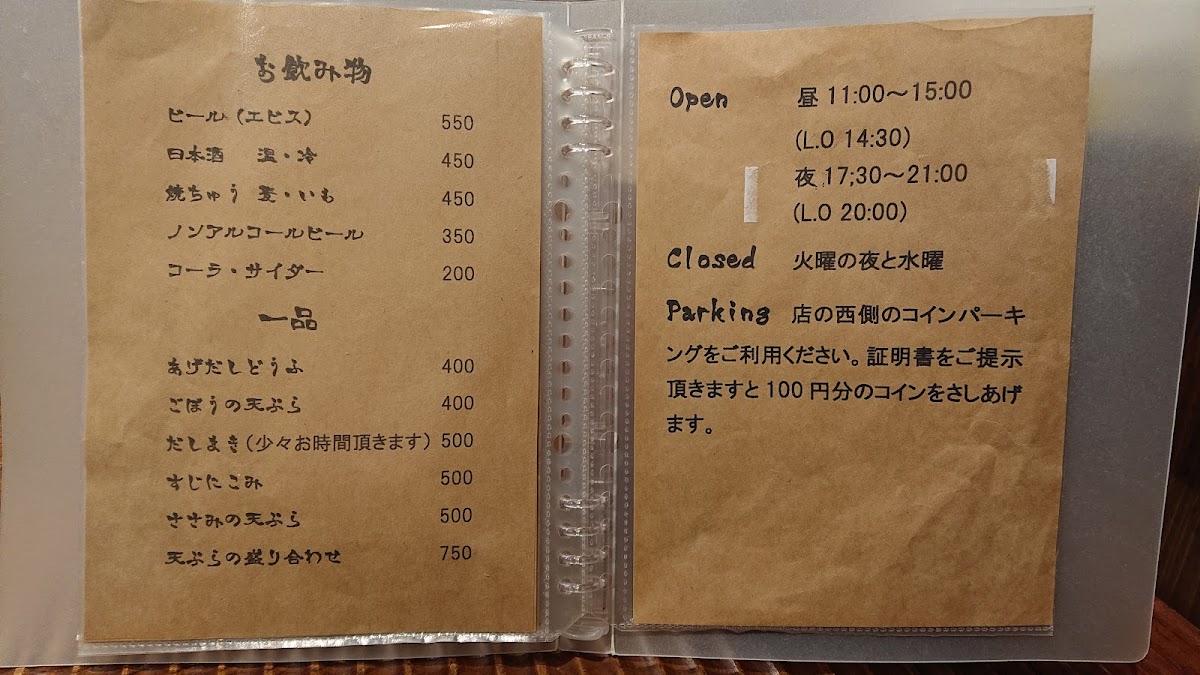 お飲み物
ビール（エビス） 550
日本酒 温・冷 450
焼ちゅう 麦・いも 450
ノンアルコールビール 350
コーラ・サイダー 200
一品
あげだしどうふ 400
ごぼうの天ぷら 400
だしまき（少々お時間頂きます） 500
すじにこみ 500
ささみの天ぷら 500
天ぷらの盛り合わせ 750
Open 昼 11:00～15:00
(L.O 14:30)
夜 17;30～21:00
(L.O 20:00)
Closed 火曜の夜と水曜
Parking 店の西側のコインパーキ
ングをご利用ください。証明書をご提示
頂きますと 100 円分のコインをさしあげ
ます。